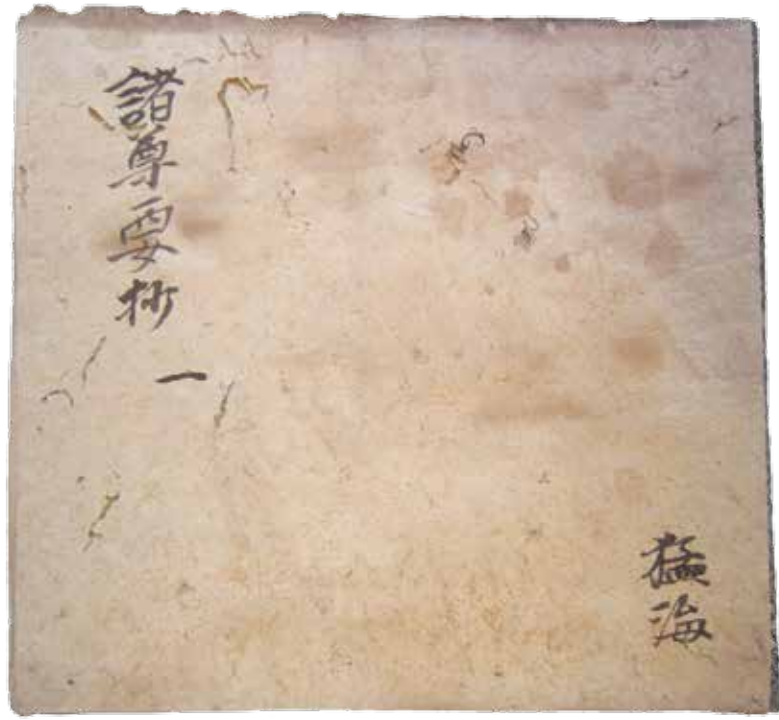 諸尊要抄 一
猛海